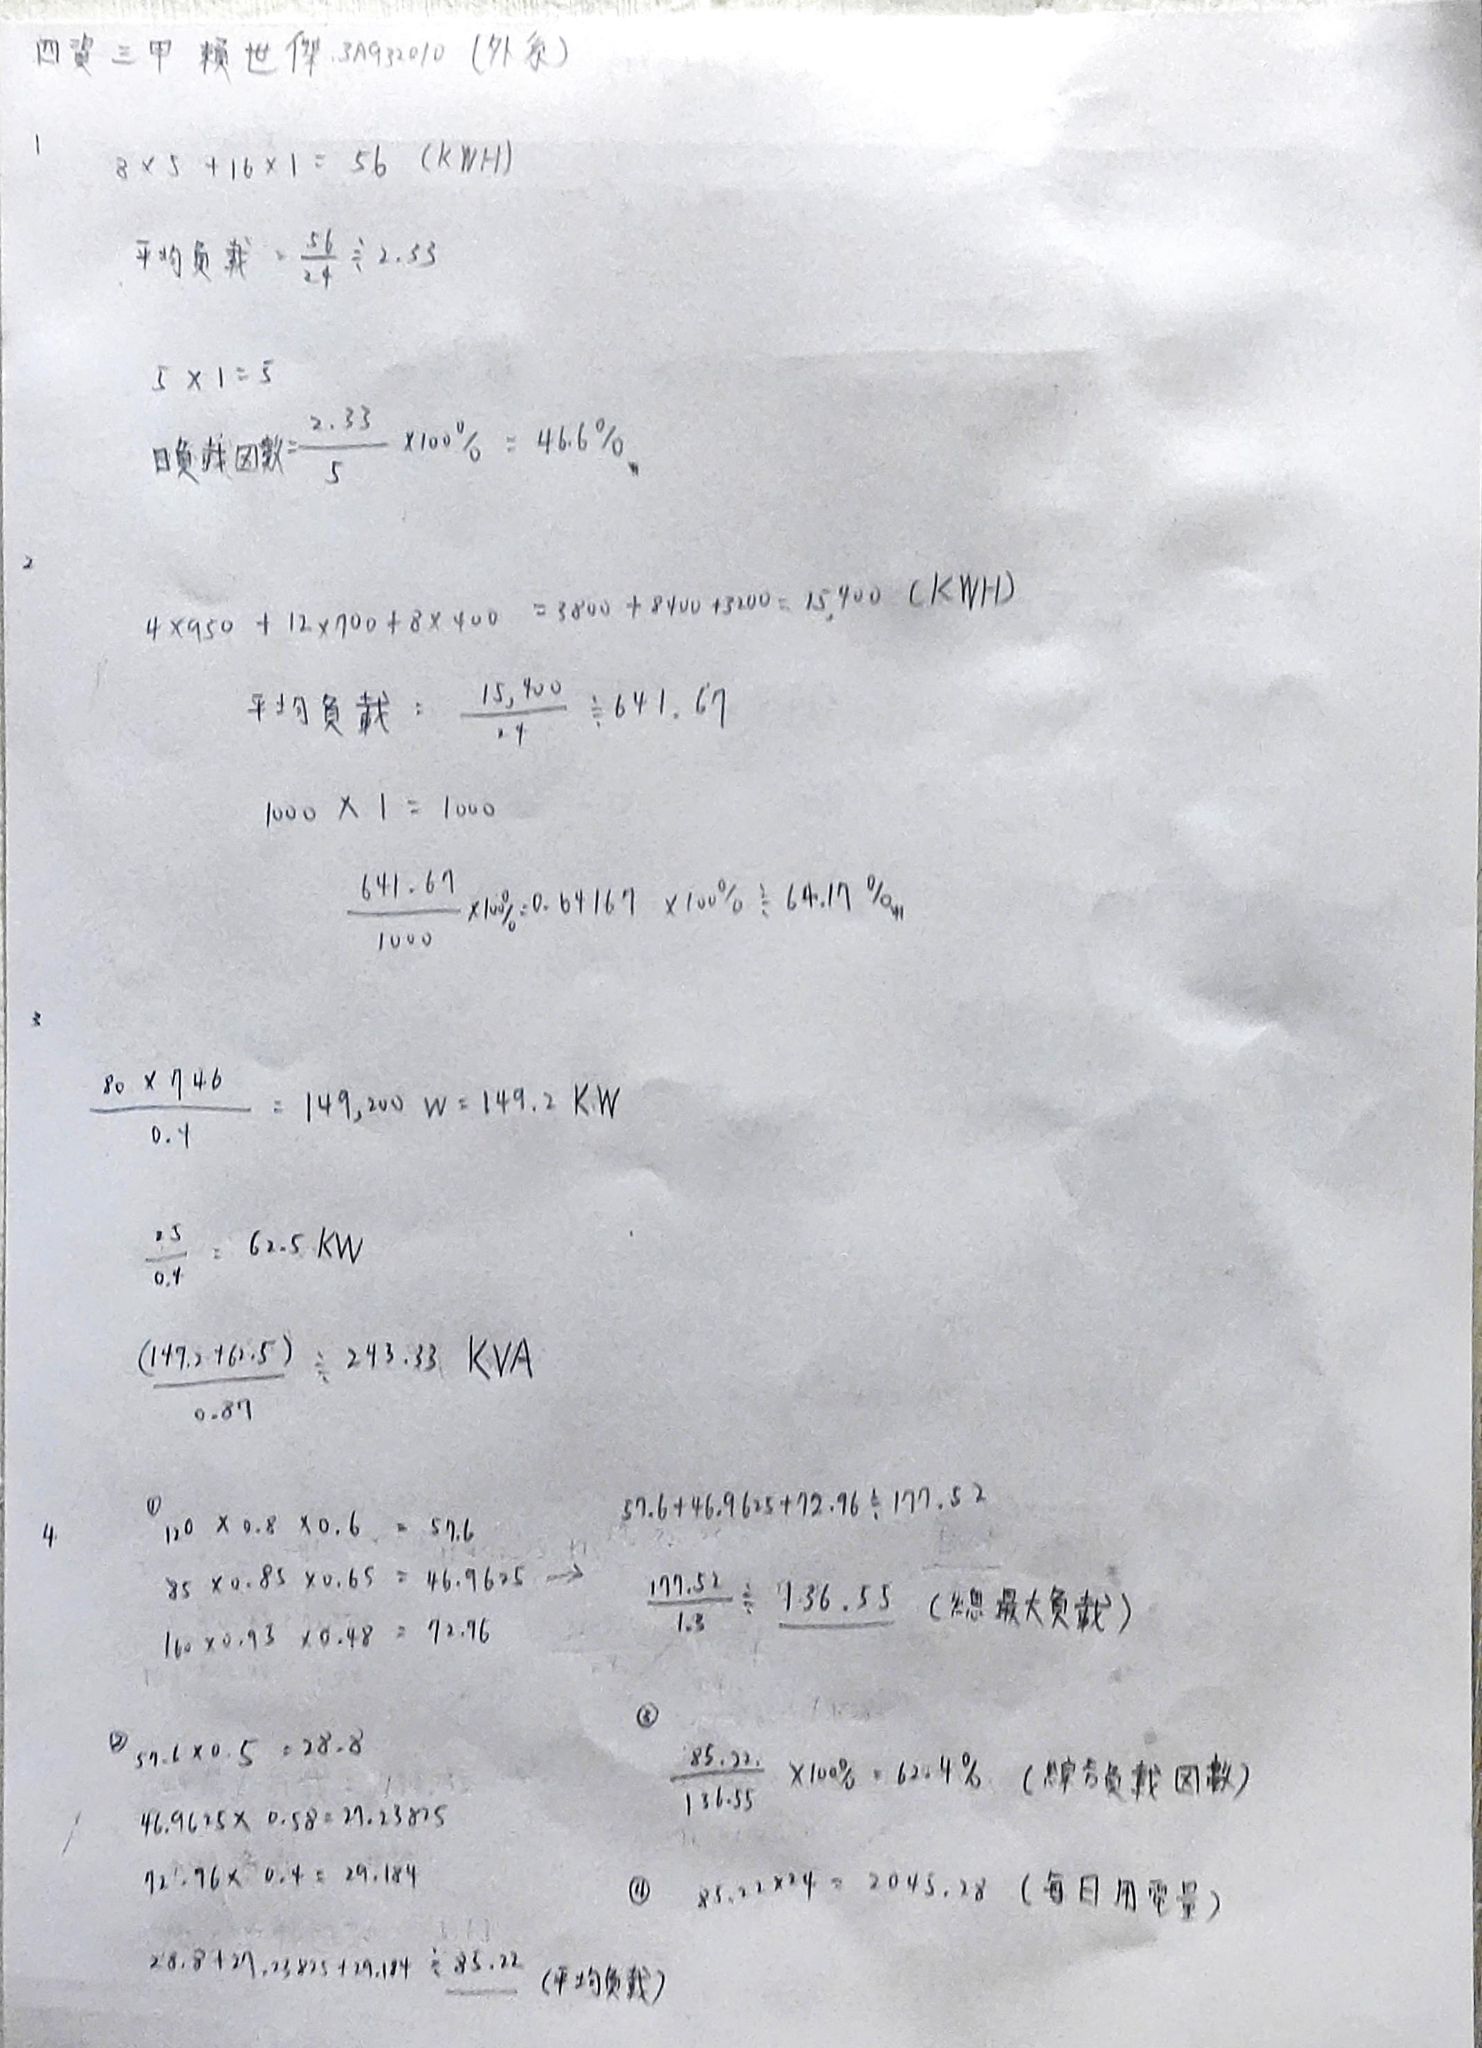 四資三甲 賴世傑 3A932010 (外系)
1
8×5+16×1=56 (KWH)
平均負載=56/24≒2.33
5×1=5
日負載因數=2.33/5×100%=46.6%
2
4×950+12×700+8×400=3800+8400+3200=15,400 (KWH)
平均負載=15,400/24≒641.67
1000×1=1000
641.67/1000×100%=0.64167×100%≒64.17%
3
80×746/0.4=149,200 W=149.2 KW
25/0.4=62.5 KW
(149.2+62.5)/0.87≒243.33 KVA
4
① 120×0.8×0.6=57.6
85×0.85×0.65=46.9625→
160×0.93×0.48=72.96
57.6+46.9625+72.96≒177.52
177.52/1.3≒136.55 (總最大負載)
② 57.6×0.5=28.8
46.9625×0.58=27.23825
72.96×0.4=29.184
28.8+27.23825+29.184≒85.22 (平均負載)
③
85.22/136.55×100%=62.4% (綜合負載因數)
④ 85.22×24=2045.28 (每日用電量)